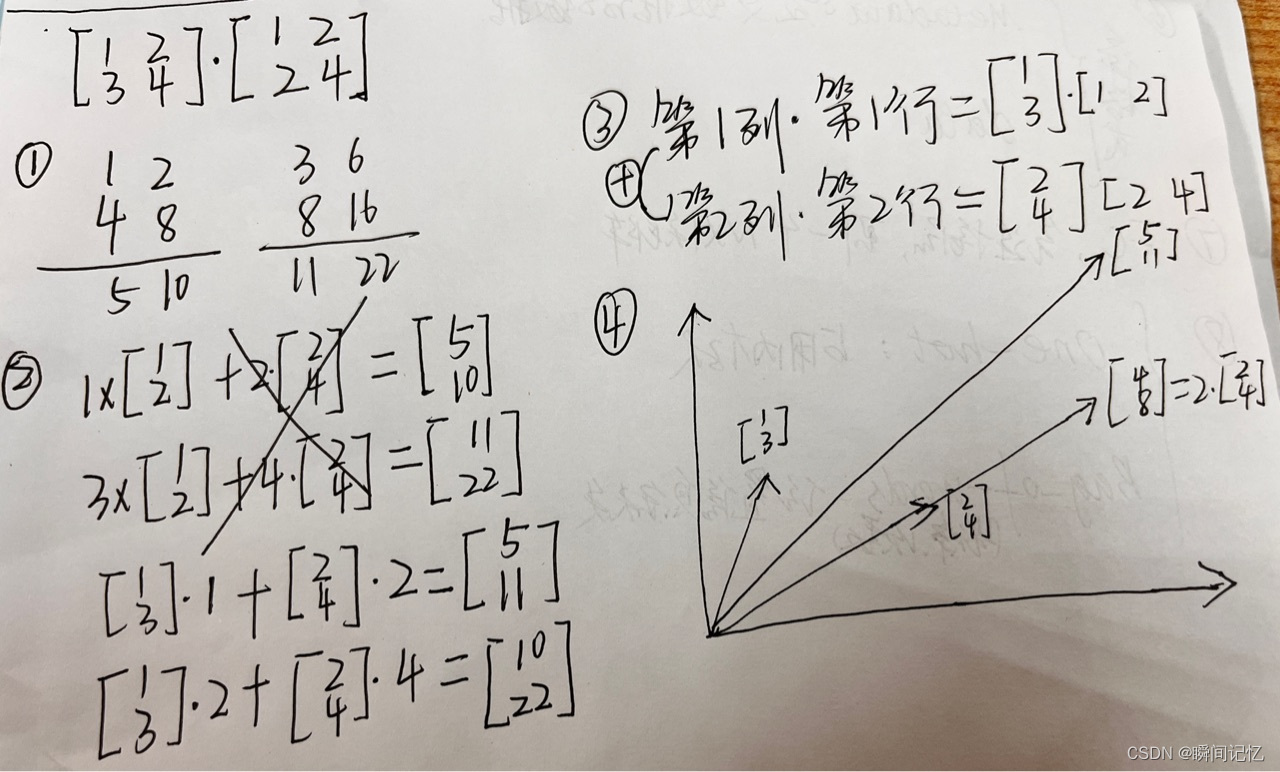 [1 2
3 4]·[1 2
2 4]
①
1 2
4 8
5 10
3 6
8 16
11 22
② 1×[1
2] + 2·[2
4] = [5
10]
3×[1
2] + 4·[2
4] = [11
22]
[1
3]·1 + [2
4]·2 = [5
11]
[1
3]·2 + [2
4]·4 = [10
22]
③ 第1列·第1行 = [1
3]·[1 2]
⊕ 第2列·第2行 = [2
4] [2 4]
④
[5
11]
[4
8] = 2·[2
4]
[1
3]
[2
4]
CSDN @瞬间记忆